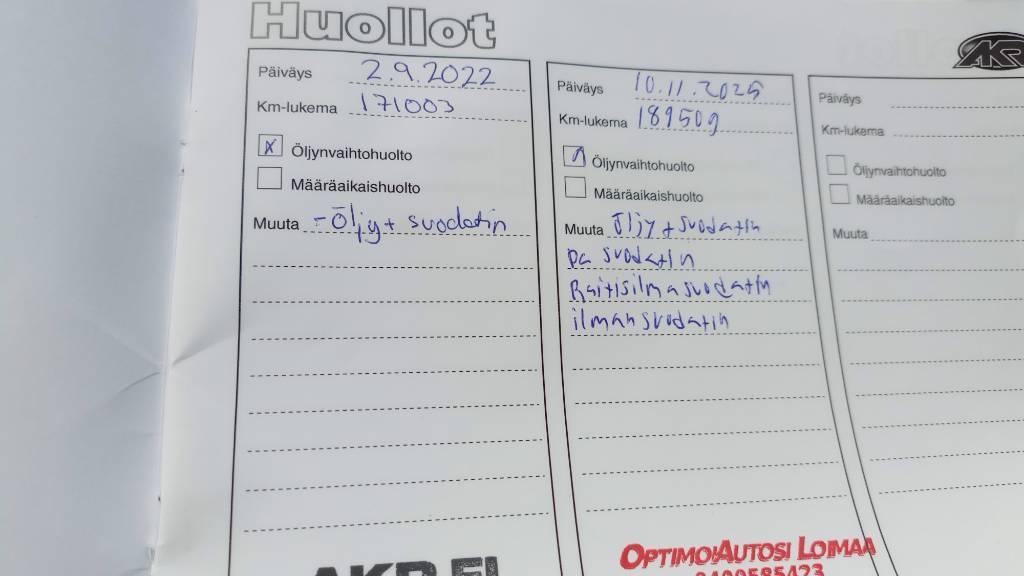 Huollot
AKR
Päiväys 2.9.2022
Km-lukema 171003
x Öljynvaihtohuolto
Määräaikaishuolto
Muuta - Öljy + suodatin
Päiväys 10.11.2025
Km-lukema 189509
Öljynvaihtohuolto
Määräaikaishuolto
Muuta Öljy + suodatin
pa suodatin
Raitisilmasuodatin
ilmansuodatin
OPTIMOIAUTOSI LOIMAA
0400585423
Päiväys
Km-lukema
Öljynvaihtohuolto
Määräaikaishuolto
Muuta